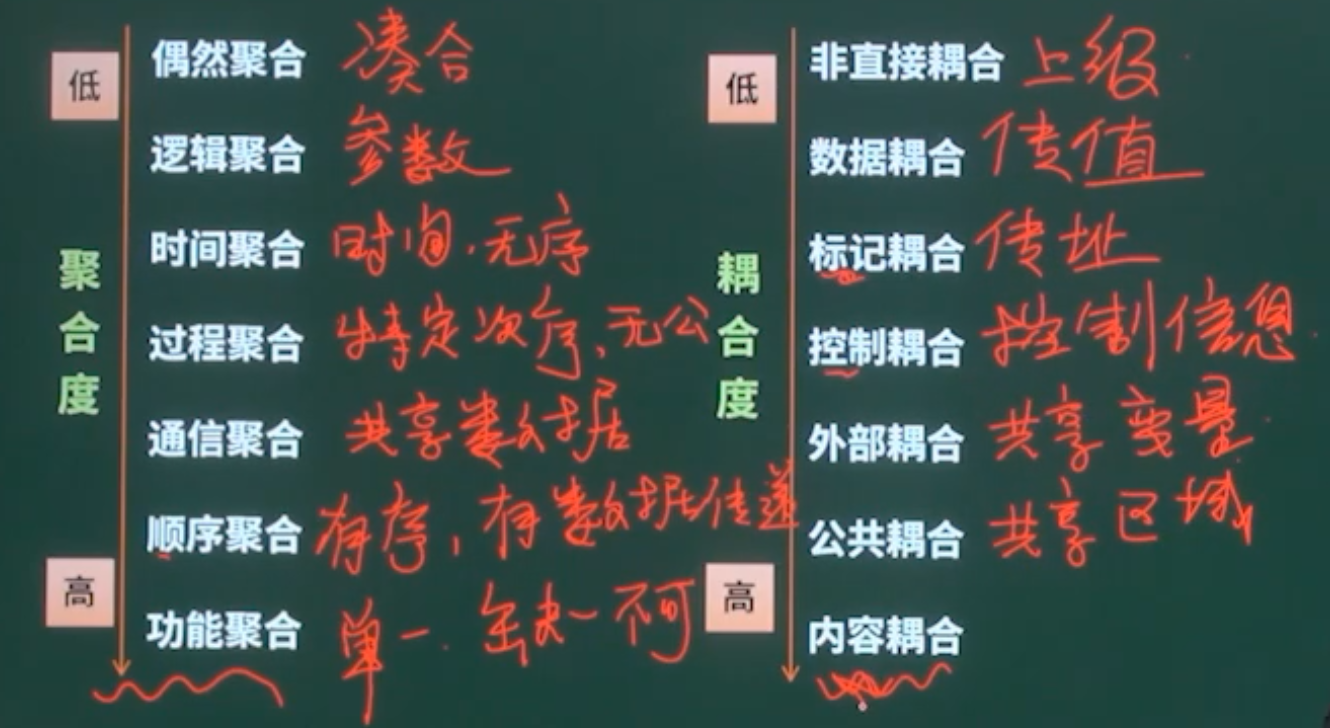 低
聚合度
高
偶然聚合 凑合
逻辑聚合 参数
时间聚合 时间,无序
过程聚合 特定次序、无公
通信聚合 共享数据
顺序聚合 有序,有数据传递
功能聚合 单一.缺一不可
低
耦合度
高
非直接耦合 上级
数据耦合 传值
标记耦合 传址
控制耦合 控制信息
外部耦合 共享变量
公共耦合 共享区域
内容耦合